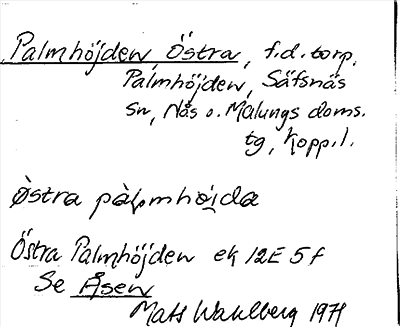 Palmhöjden, Östra, f.d. torp.
Palmhöjden, Säfsnäs
sn, Nås o. Malungs doms.
tg, Kopp.l.
östra pàlmhöjda
Östra Palmhöjden ek 12E 5f
Se Åsen
Mats Wahlberg